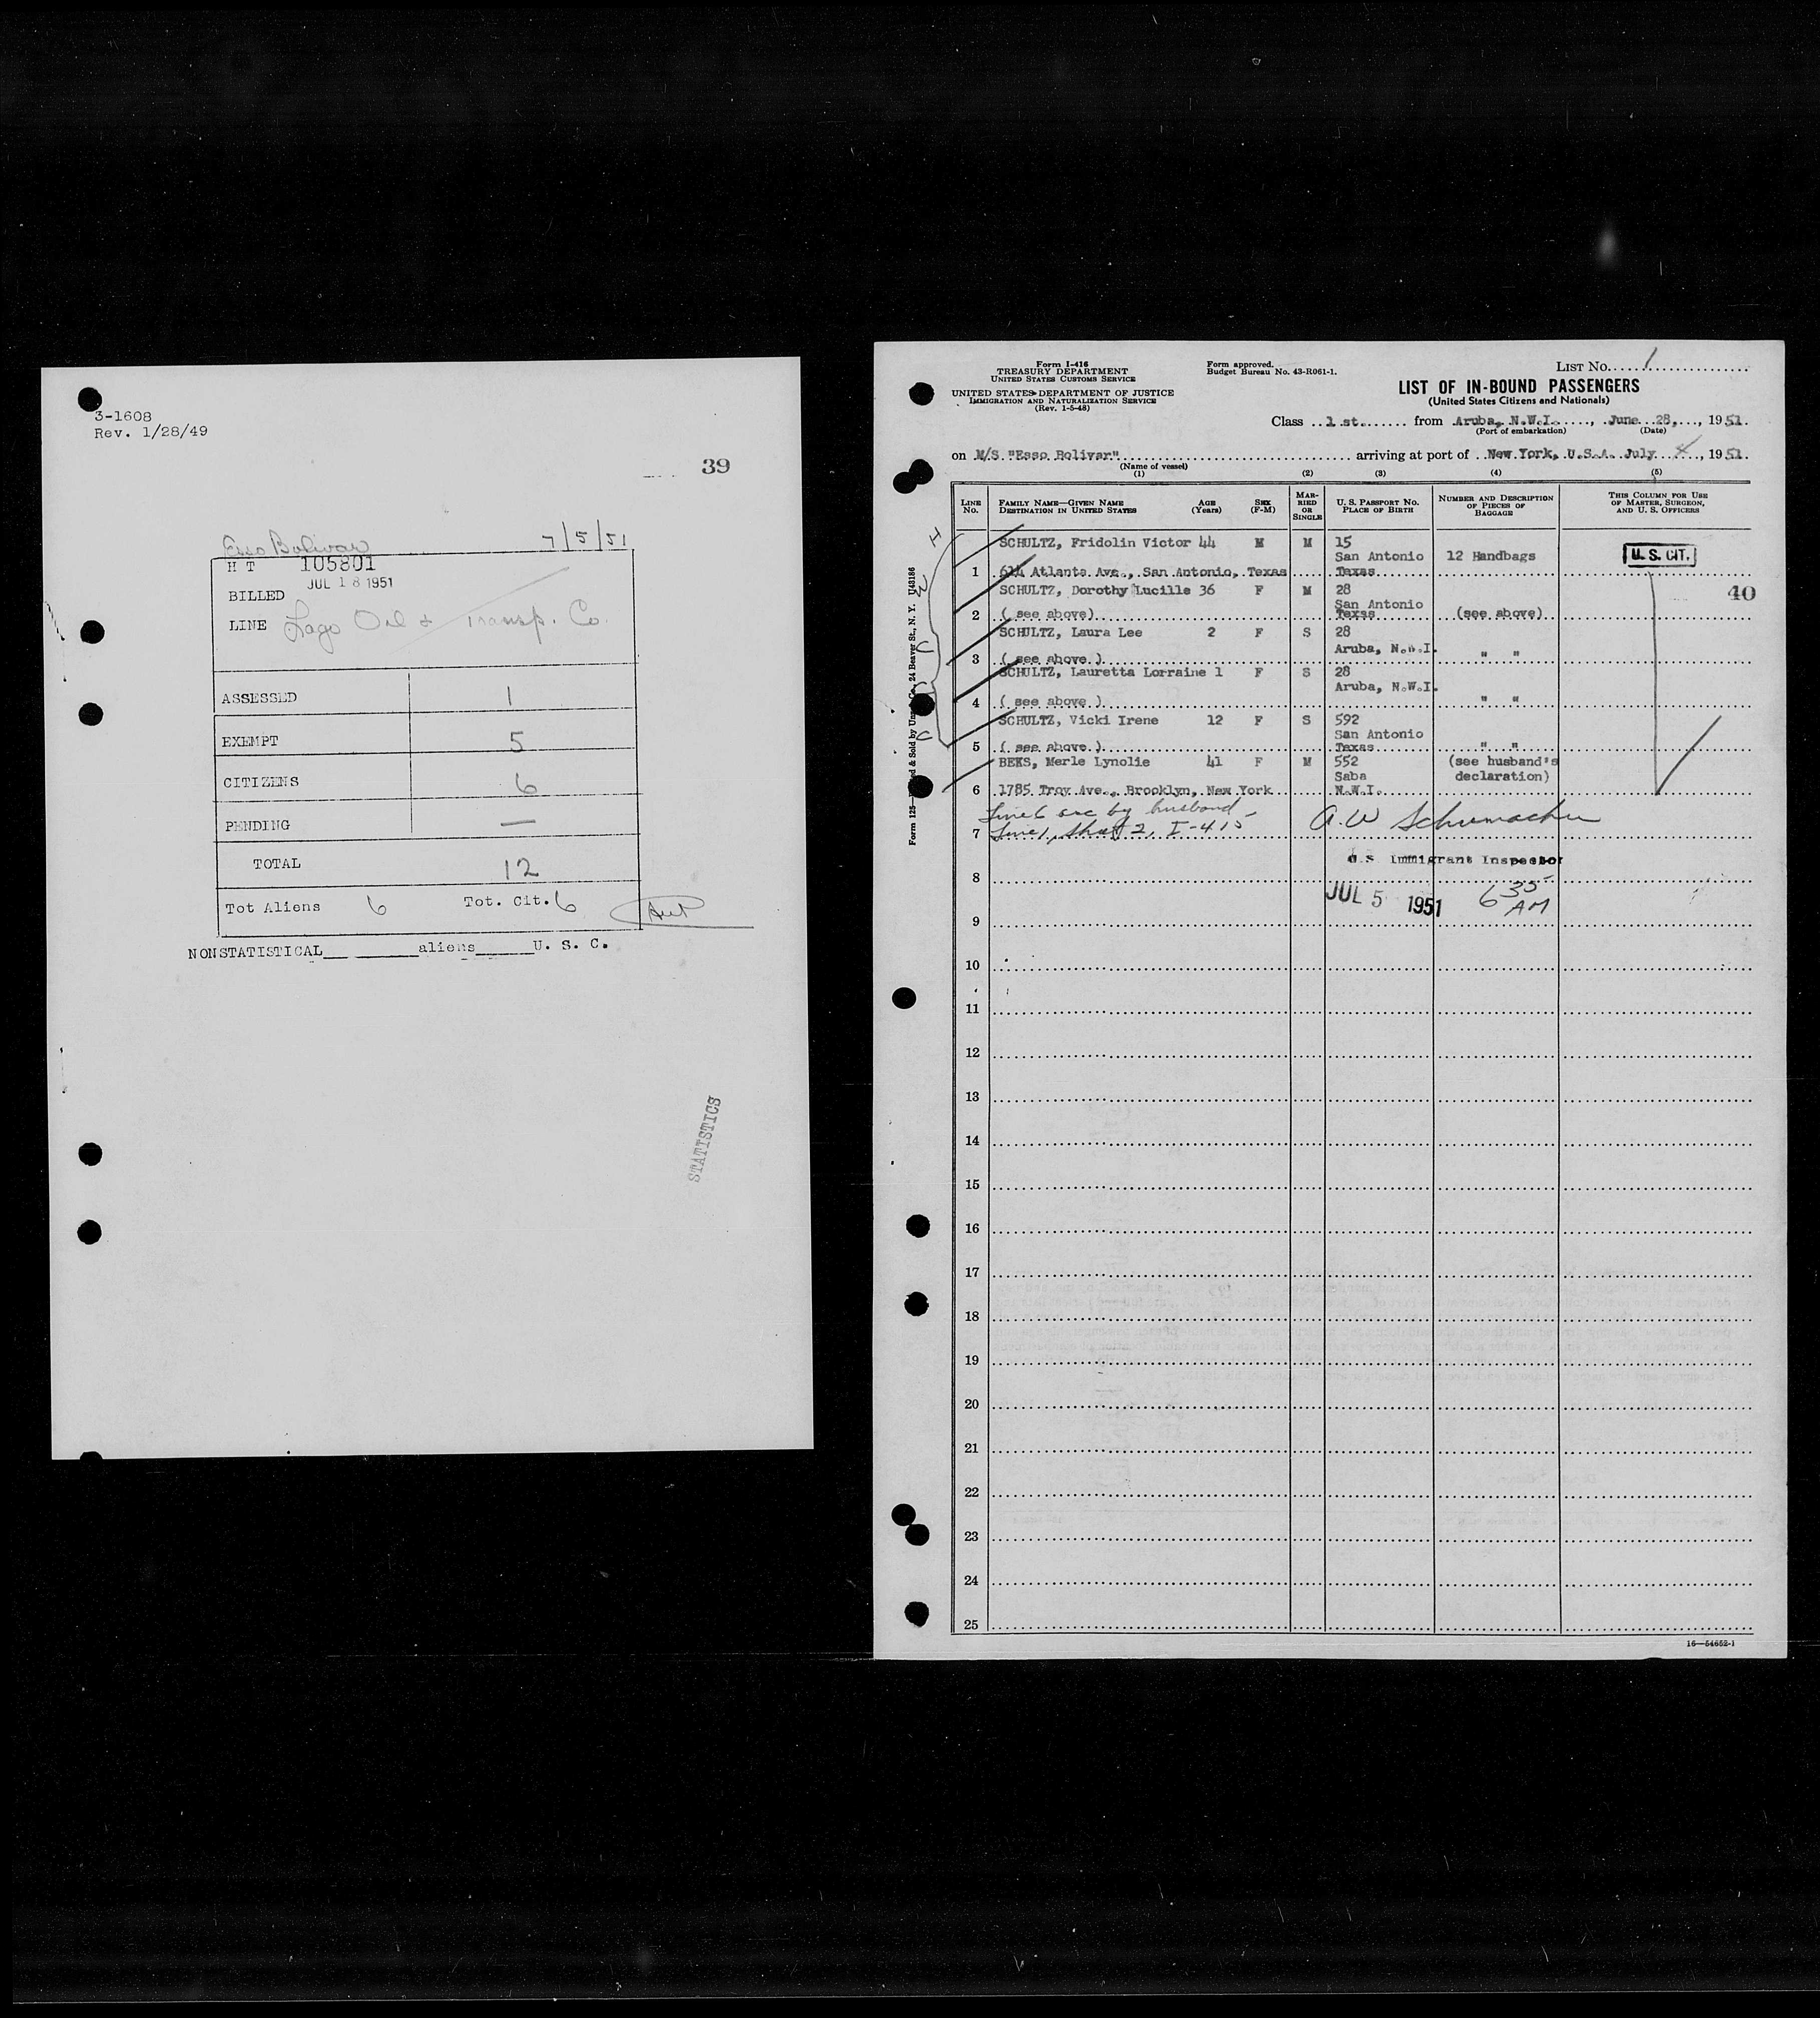 3-1608
Rev. 1/28/49
39
Esso Bolivar 7/5/51
H T 105801
JUL 18 1951
BILLED
LINE Lago Oil & Transp. Co.
ASSESSED 1
EXEMPT 5
CITIZENS 6
PENDING —
TOTAL 12
Tot Aliens 6 Tot. Cit. 6
NONSTATISTICAL aliens U. S. C.
STATISTICS
Form I-416
TREASURY DEPARTMENT
UNITED STATES CUSTOMS SERVICE
UNITED STATES DEPARTMENT OF JUSTICE
IMMIGRATION AND NATURALIZATION SERVICE
(Rev. 1-5-48)
Form approved.
Budget Bureau No. 43-R061-1.
LIST No. 1
LIST OF IN-BOUND PASSENGERS
(United States Citizens and Nationals)
Class 1 st. from Aruba, N.W.I., June 28, 1951
(Port of embarkation) (Date)
on M/S "Esso Bolivar" arriving at port of New York, U.S.A. July 1951
(Name of vessel)
(1) (2) (3) (4) (5)
LINE No. FAMILY NAME—GIVEN NAME DESTINATION IN UNITED STATES AGE (Years) SEX (F-M) MARRIED OR SINGLE U. S. PASSPORT NO. PLACE OF BIRTH NUMBER AND DESCRIPTION OF PIECES OF BAGGAGE THIS COLUMN FOR USE OF MASTER, SURGEON, AND U. S. OFFICERS
SCHULTZ, Fridolin Victor 44 M M 15
San Antonio 12 Handbags U. S. CIT.
1 614 Atlanta Ave., San Antonio, Texas Texas
SCHULTZ, Dorothy Lucille 36 F M 28
40
San Antonio
2 ( see above) Texas (see above)
SCHULTZ, Laura Lee 2 F S 28
Aruba, N.W.I.
3 ( see above ) " "
SCHULTZ, Lauretta Lorraine 1 F S 28
Aruba, N.W.I.
4 ( see above ) " "
SCHULTZ, Vicki Irene 12 F S 592
San Antonio
5 ( see above ) Texas " "
BEKS, Merle Lynolie 41 F M 552 (see husband's
Saba declaration)
6 1785 Troy Ave., Brooklyn, New York N.W.I.
Line 6 acc by husband
7 Line 1, Sheet 2, I-415 A. W Schumacher
U.S Immigrant Inspector
8
JUL 5 1951 6 35 AM
9
10
11
12
13
14
15
16
17
18
19
20
21
22
23
24
25
16—54652-1